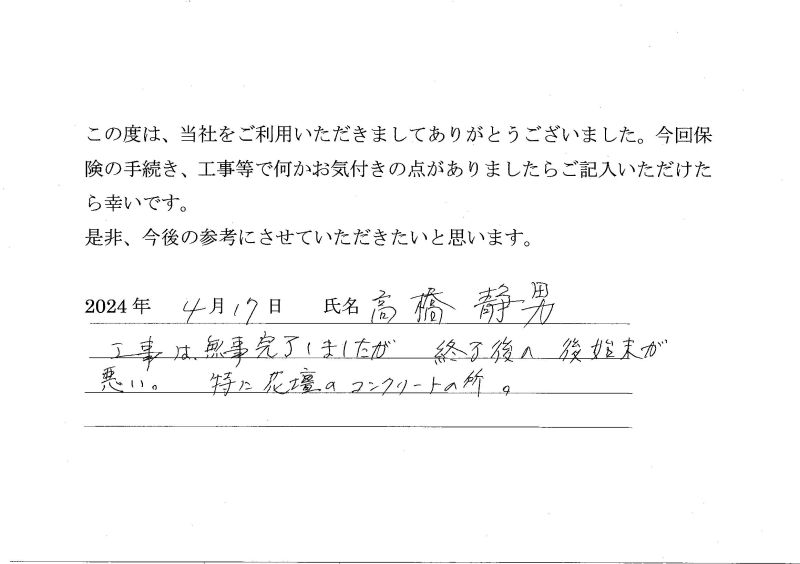 この度は、当社をご利用いただきましてありがとうございました。今回保
険の手続き、工事等で何かお気付きの点がありましたらご記入いただけた
ら幸いです。
是非、今後の参考にさせていただきたいと思います。
2024年 4月17日 氏名 高橋 静男
工事は、無事完了しましたが 終了後の後始末が
悪い。 特に花壇のコンクリートの所。